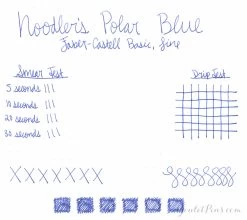 Noodler's Polar Blue
Faber-Castell Basic, fine
Smear Test
5 seconds
10 seconds
20 seconds
30 seconds
Drip Test
XXXXXXX